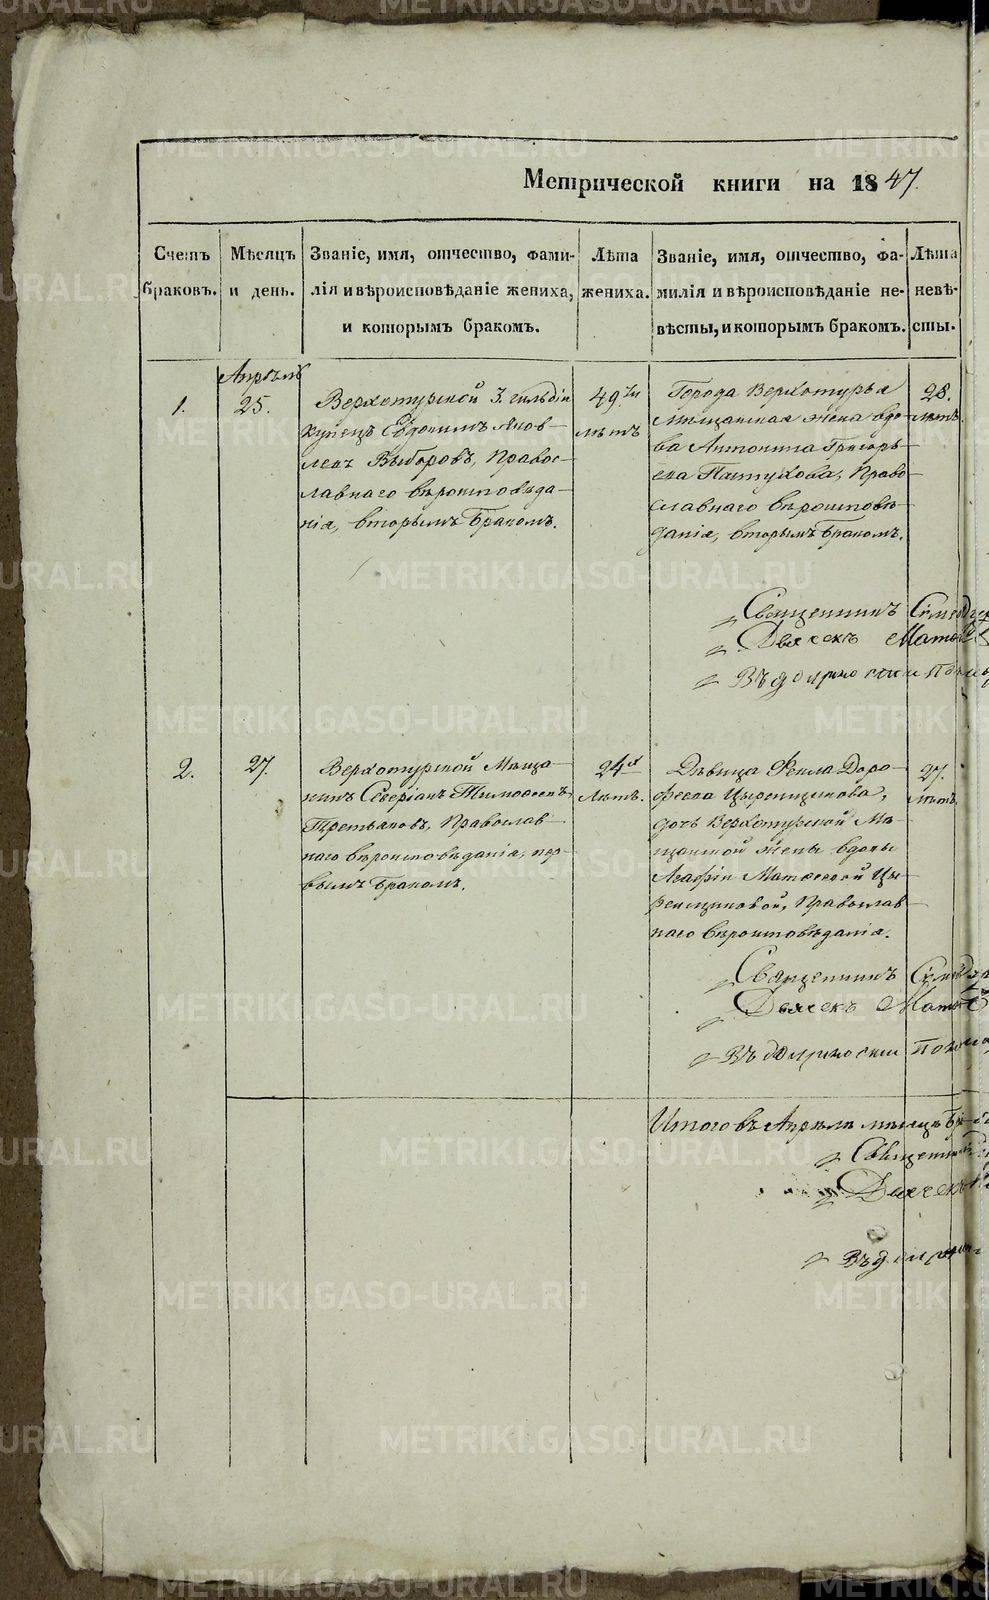 Метрической книги на 1847.
Счетъ браковъ.
Мѣсяцъ и день.
Званіе, имя, отчество, фами-
лія и вѣроисповѣданіе жениха,
и которымъ бракомъ.
Лѣта
жениха.
Званіе, имя, отчество, фа-
милія и вѣроисповѣданіе не-
вѣсты, и которымъ бракомъ.
Лѣта
невѣ-
сты.
Апрѣль
1.
25.
Верхотурской 3. гильдіи
купецъ Евдокимъ Яков-
левъ Выборовъ, Правос-
лавнаго вѣроисповѣда-
нія, вторымъ бракомъ.
49.ти
лѣтъ
Города Верхотурья
мѣщанская жена вдо-
ва Антонина Григорь-
ева Пастухова, Право-
славнаго вѣроисповѣ-
данія, вторымъ бракомъ.
28.
лѣтъ.
Священникъ
Дьячекъ
Въ должности
2.
27.
Верхотурской Мѣща-
нинъ Северіанъ Тимоѳеевъ
Третьяковъ, Православ-
наго вѣроисповѣданія, пер-
вымъ бракомъ.
24х
Лѣтъ.
Дѣвица Ѳекла Доро-
феева Цыренщикова,
дочь Верхотурской Мѣ-
щанской жены вдовы
Агафіи Матвеевой Цы-
ренщиковой, Православ-
наго вѣроисповѣданія.
27.
лѣтъ.
Священникъ
Дьячекъ
Въ должности
Итого въ Апрѣлѣ мѣсяцѣ
Священникъ
Дьячекъ
METRIKI.GASO-URAL.RU